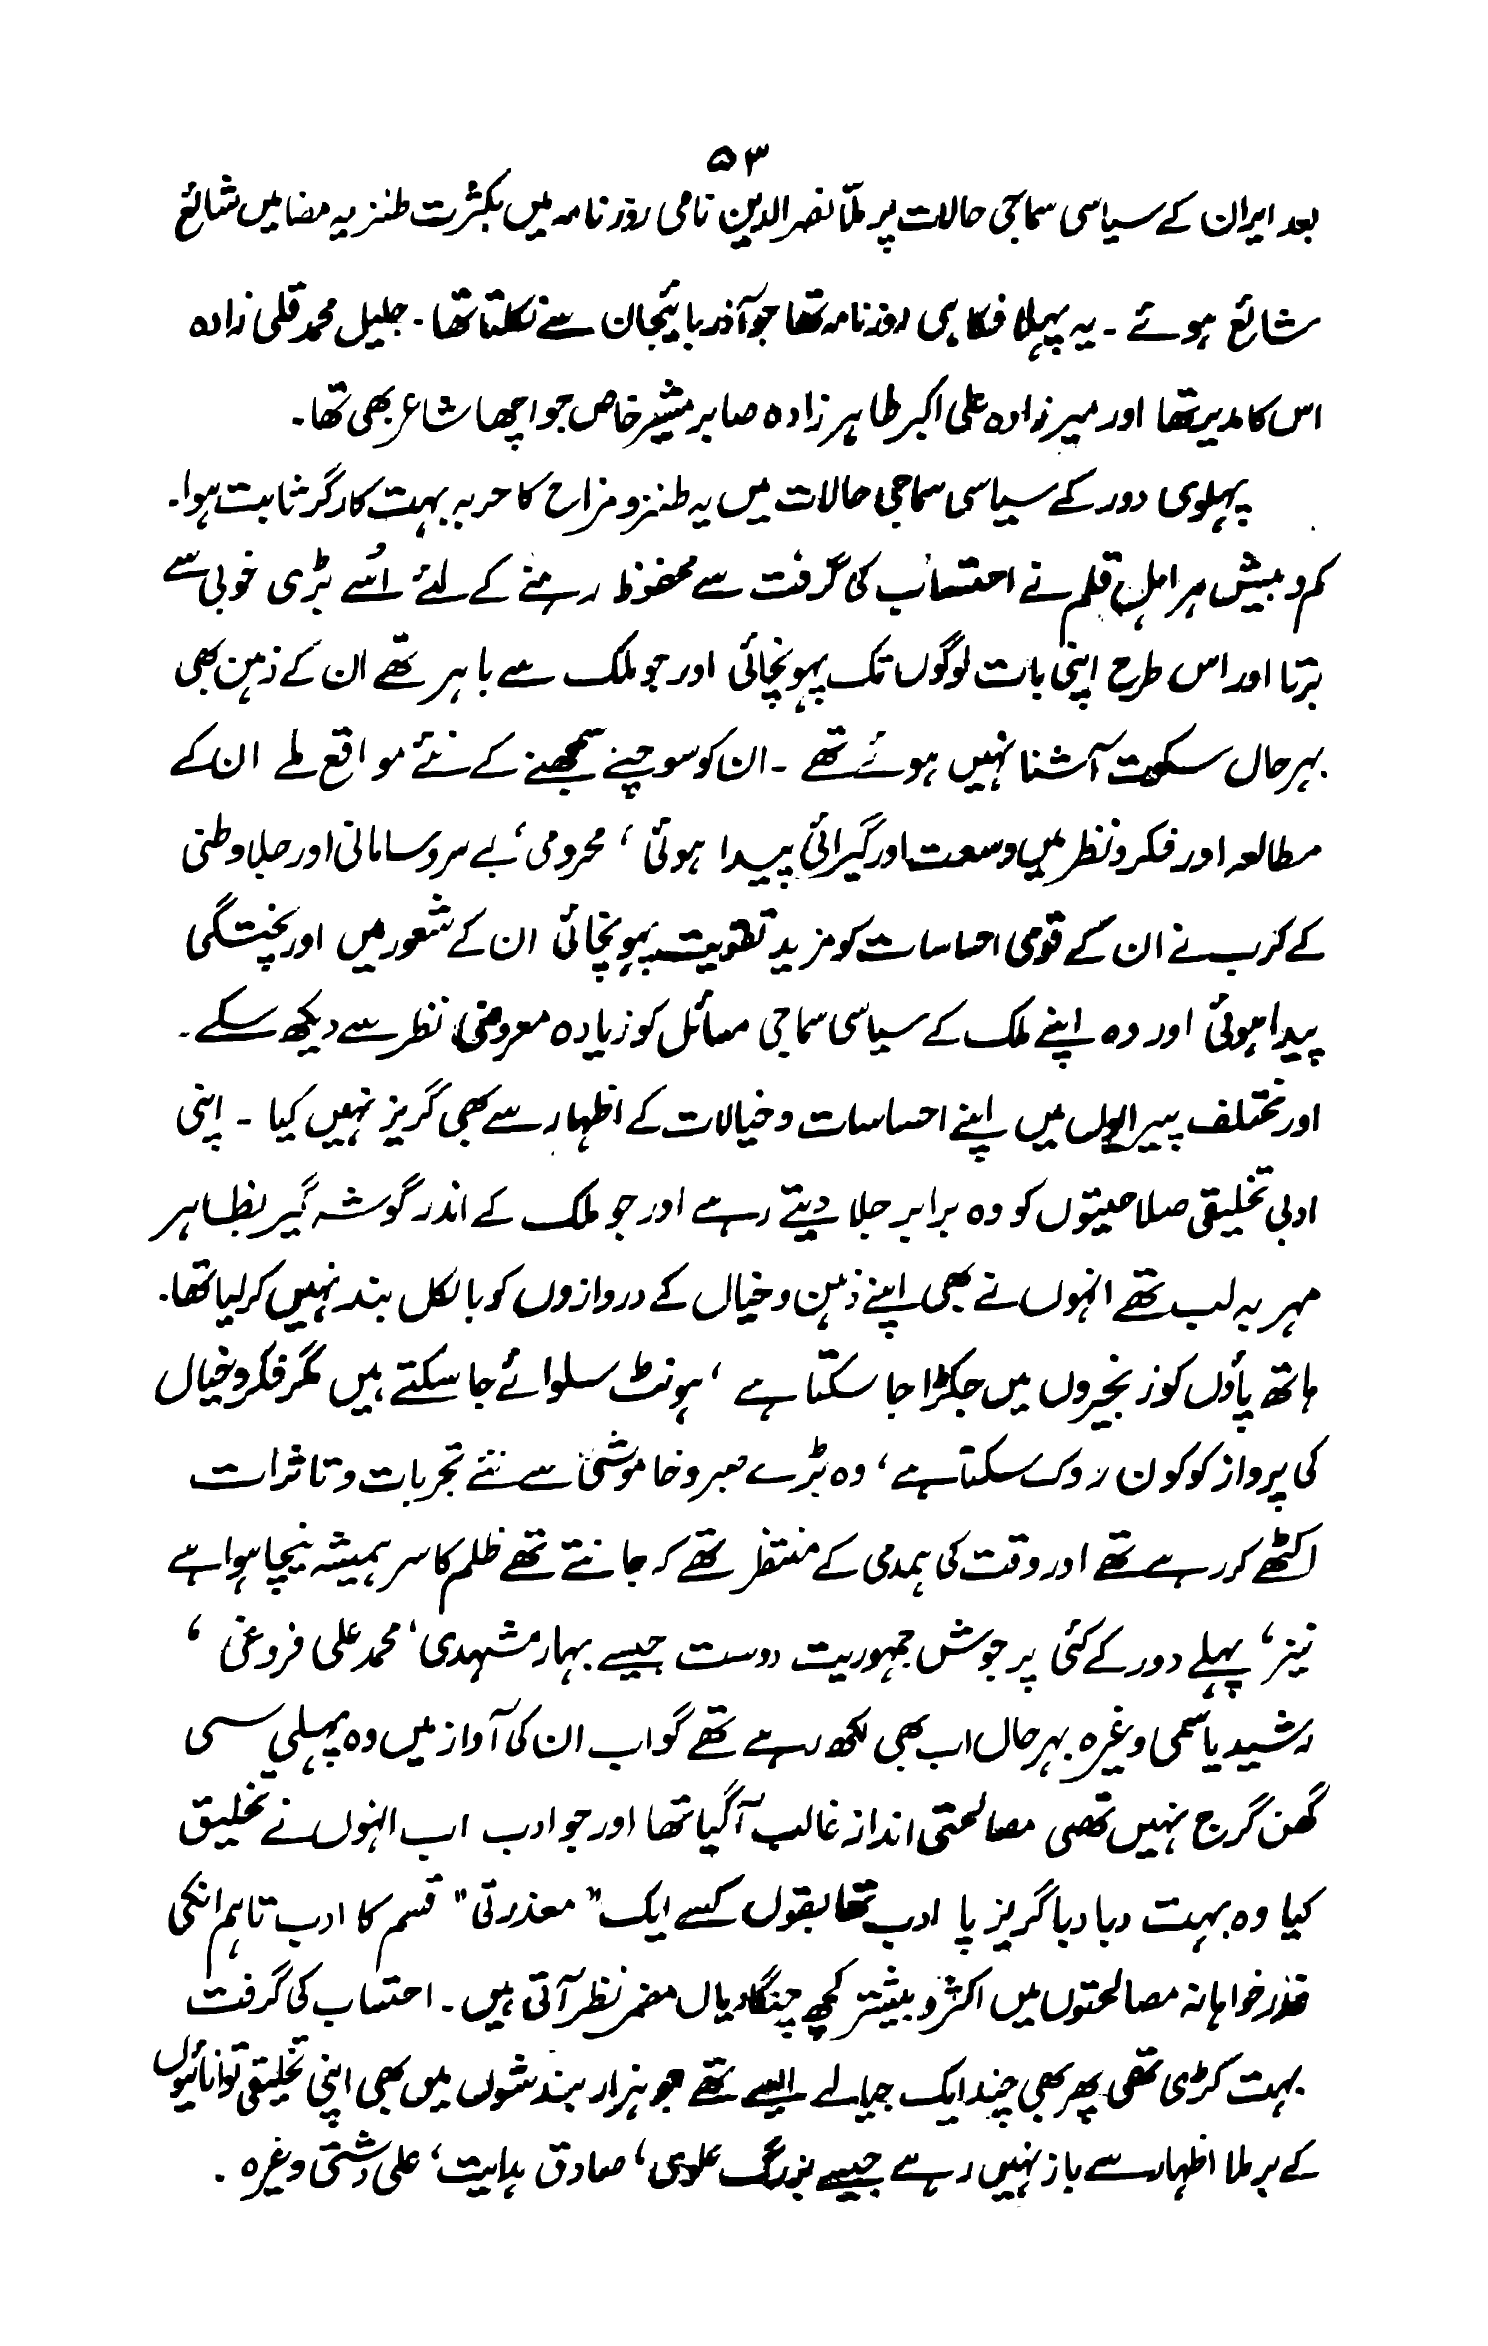 ۵۳
بعد ایران کے سیاسی سماجی حالات پر ملّا نصر الدین نامی روزنامہ میں بکثرت طنزیہ مضامیں شائع
شائع ہوئے ۔ یہ پہلا فکاہی روزنامہ تھا جو آذربائیجان سے نکلتا تھا ۔ جلیل محمد قلی زادہ
اس کا مدیر تھا اور میرزادہ علی اکبر طاہر زادہ صابر مشیر خاص جو اچھا شاعر بھی تھا۔
پہلوی دور کے سیاسی سماجی حالات میں یہ طنز و مزاح کا حربہ بہت کارگر ثابت ہوا۔
کم و بیش ہر اہل قلم نے احتساب کی گرفت سے محفوظ رہنے کے لئے اُسے بڑی خوبی سے
برتا اور اس طرح اپنی بات لوگوں تک پہونچائی اور جو ملک سے باہر تھے ان کے ذہن بھی
بہرحال سکوت آشنا نہیں ہوئے تھے ۔ ان کو سوچنے سمجھنے کے نئے مواقع ملے ان کے
مطالعہ اور فکر و نظر میں وسعت اور گیرائی پیدا ہوئی ، محرومی ، بے سروسامانی اور جلاوطنی
کے کرب نے ان کے قومی احساسات کو مزید تقویت پہونچائی ان کے شعور میں اور پختگی
پیدا ہوئی اور وہ اپنے ملک کے سیاسی سماجی مسائل کو زیادہ معروضی نظر سے دیکھ سکے ۔
اور مختلف پیرایوں میں اپنے احساسات و خیالات کے اظہار سے بھی گریز نہیں کیا ۔ اپنی
ادبی تخلیقی صلاحیتوں کو وہ برابر جلا دیتے رہے اور جو ملک کے اندر گوشہ گیر بظاہر
مہر بہ لب تھے انہوں نے بھی اپنے ذہن و خیال کے دروازوں کو بالکل بند نہیں کر لیا تھا۔
ہاتھ پاؤں کو زنجیروں میں جکڑا جا سکتا ہے ، ہونٹ سلوائے جا سکتے ہیں مگر فکر و خیال
کی پرواز کو کون روک سکتا ہے ، وہ بڑے صبر و خاموشی سے نئے تجربات و تاثرات
اکٹھے کر رہے تھے اور وقت کی ہمدمی کے منتظر تھے کہ جانتے تھے ظلم کا سر ہمیشہ نیچا ہوا ہے
نیز ، پہلے دور کے کئی پر جوش جمہوریت دوست جیسے بہار مشہدی ، محمد علی فروغی ،
رشید یاسمی وغیرہ بہرحال اب بھی لکھ رہے تھے گو اب ان کی آواز میں وہ پہلی سی
گھن گرج نہیں تھی مصالحتی انداز غالب آ گیا تھا اور جو ادب اب انہوں نے تخلیق
کیا وہ بہت دبا دبا گریز پا ادب تھا بقول کسے ایک " معذرتی " قسم کا ادب تاہم انکی
عذر خواہانہ مصالحتوں میں اکثر و بیشتر کچھ چنگاریاں مضمر نظر آتی ہیں ۔ احتساب کی گرفت
بہت کڑی تھی پھر بھی چند ایک جیالے ایسے تھے جو ہزار بندشوں میں بھی اپنی تخلیقی توانائیوں
کے برملا اظہار سے باز نہیں رہے جیسے بزرگ علوی ، صادق ہدایت ، علی دشتی وغیرہ ۔